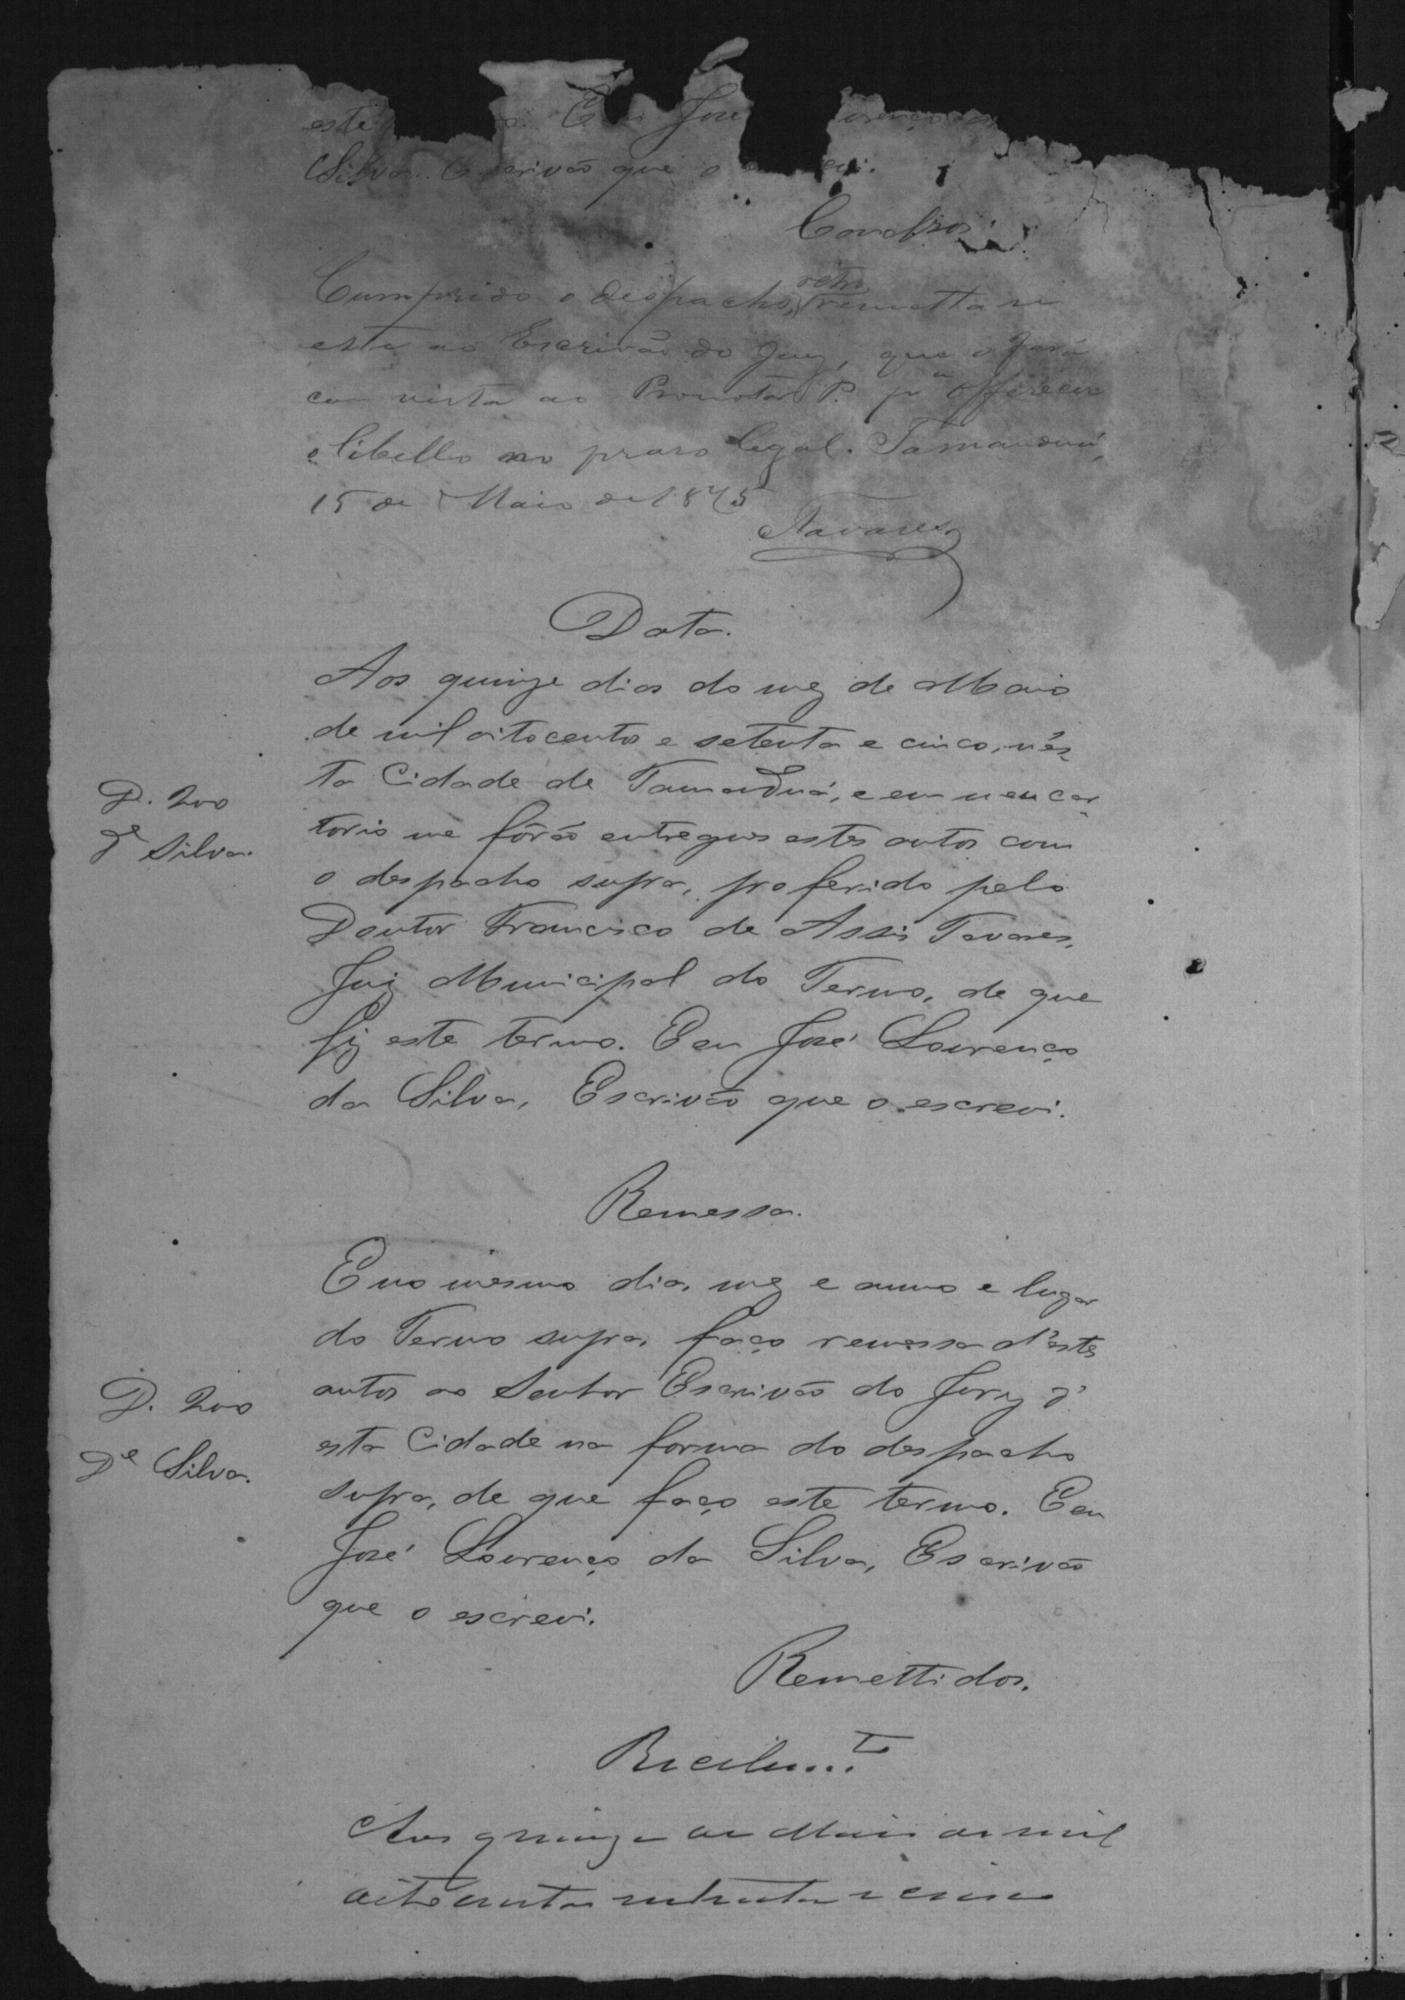 este E eu José Lourenço da
Silva Escrivão que o escrevi.
Concl.zos
Cumprido o despacho, retro remetta se
este ao Escrivão do Jury, que o fará
com vista ao Promotor P. pª offerecer
o libello no praso legal. Tamanduá,
15 de Maio de 1875
Tavares
Data.
Aos quinze dias do mez de Maio
de mil oitocentos e setenta e cinco, n'es-
ta Cidade de Tamanduá, e em meu car
torio me fôrão entregues estes autos com
o despacho supra, proferido pelo
Doutor Francisco de Assis Tavares,
Juiz Municipal do Termo, de que
fiz este termo. E eu José Lourenço
da Silva, Escrivão que o escrevi.
D. 200
Dº Silva.
Remessa.
E no mesmo dia, mez e anno e lugar
do Termo supra, faço remessa d'estes
autos ao Senhor Escrivão do Jury d'
esta Cidade na forma do despacho
supra, de que faço este termo. E eu
José Lourenço da Silva, Escrivão
que o escrevi.
D. 200
Dº Silva.
Remettidos.
Recebim.to
Aos quinze de Maio de mil
oitocentos setenta e cinco